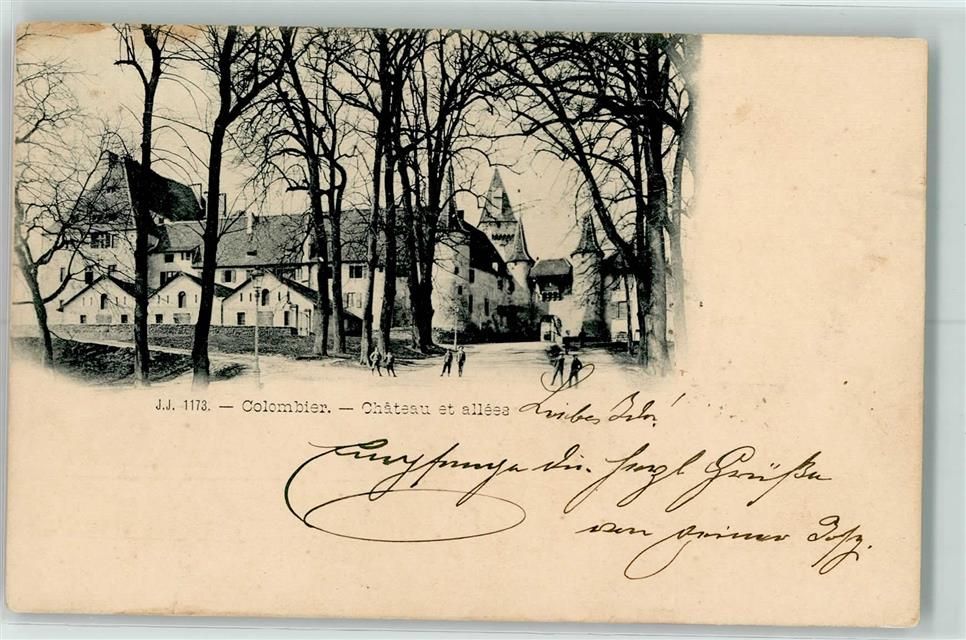 J.J. 1173. — Colombier. — Château et allées
Liebes Ida!
Empfange die herzl Grüße
von Deiner